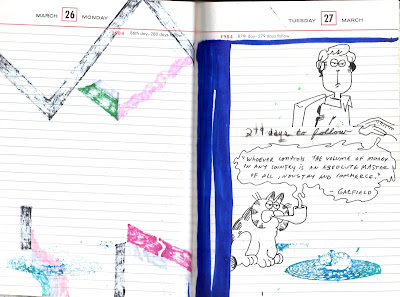 MARCH 26 MONDAY
1984 86th day–280 days follow
TUESDAY 27 MARCH
1984 87th day–279 days follow
279 days to follow
"WHOEVER CONTROLS THE VOLUME OF MONEY
IN ANY COUNTRY IS AN ABSOLUTE MASTER
OF ALL INDUSTRY AND COMMERCE."
– GARFIELD